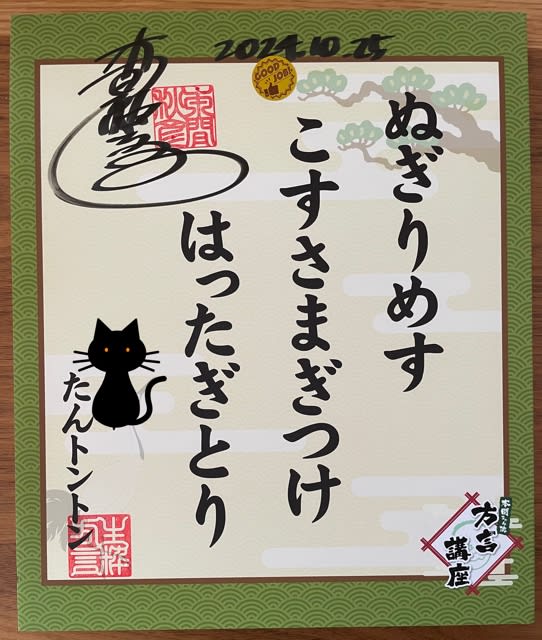 2024.10.25
GOOD JOB!
ぬぎりめす
こすさまぎつけ
はったぎとり
たんトントン
方言
講座